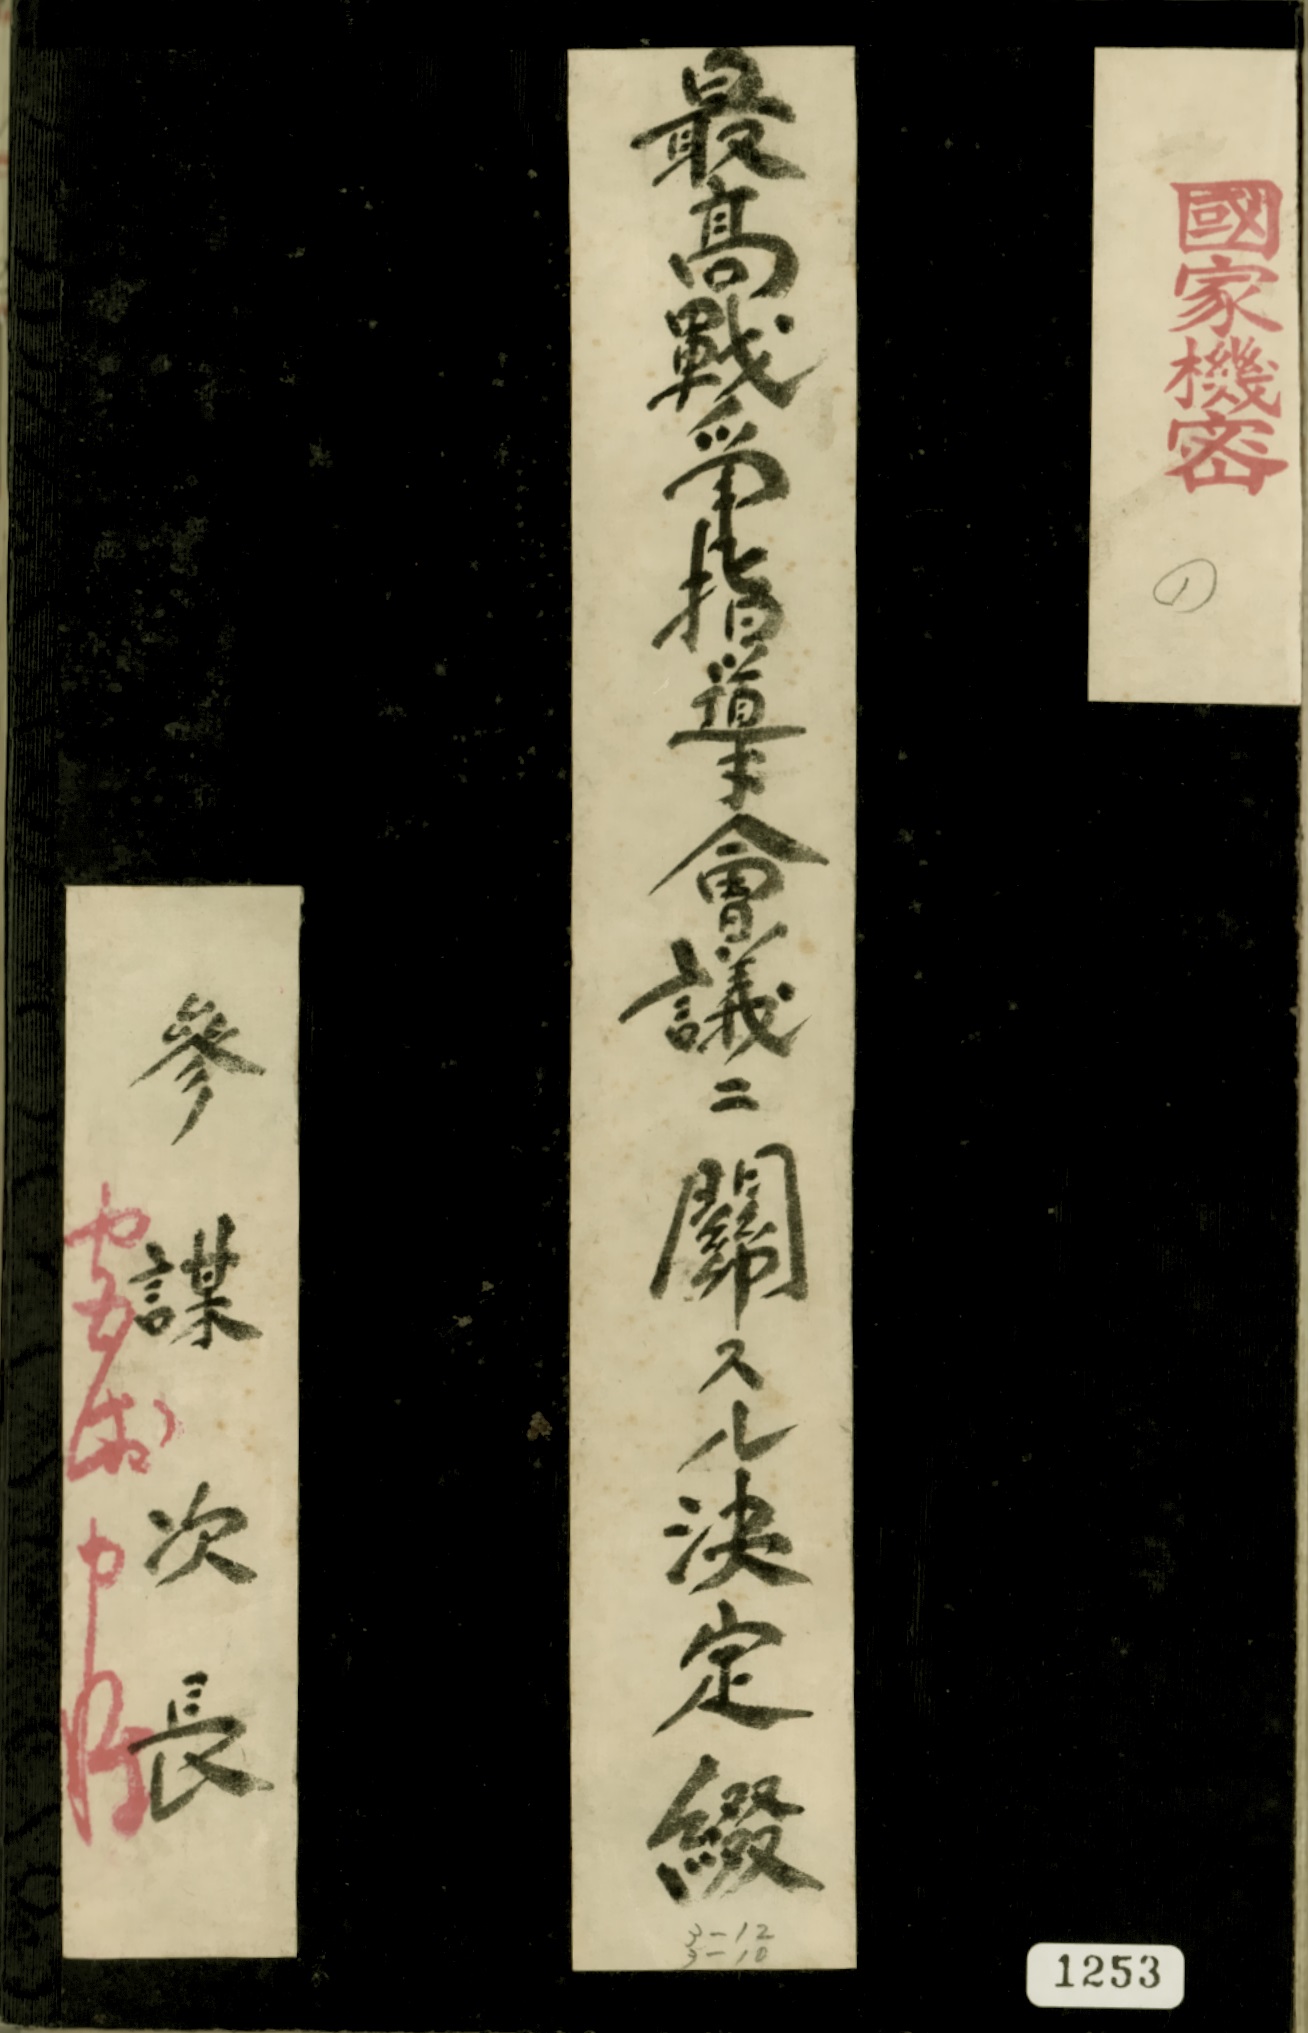 國家機密
1
最高戰爭指導會議ニ關スル決定綴
3-12
3-10
參謀次長
1253